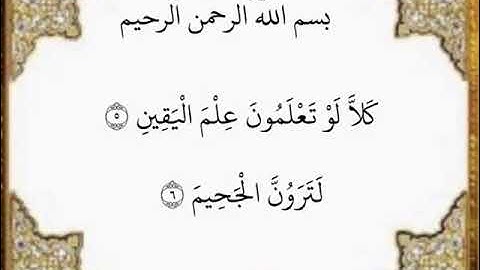 بسم الله الرحمن الرحيم
كَلاَّ لَوْ تَعْلَمُونَ عِلْمَ الْيَقِينِ ٥
لَتَرَوُنَّ الْجَحِيمَ ٦